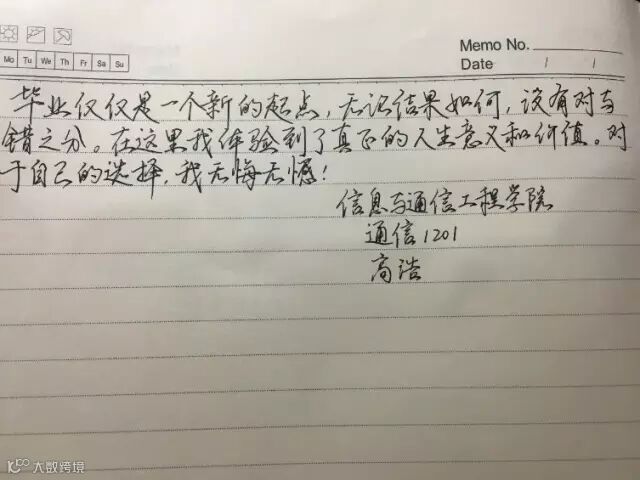 Memo No.
Mo Tu We Th Fr Sa Su
Date / /
毕业仅仅是一个新的起点，无论结果如何，没有对与
错之分。在这里我体验到了真正的人生意义和价值。对
于自己的选择，我无悔无憾！
信息与通信工程学院
通信1201
高浩
大数跨境